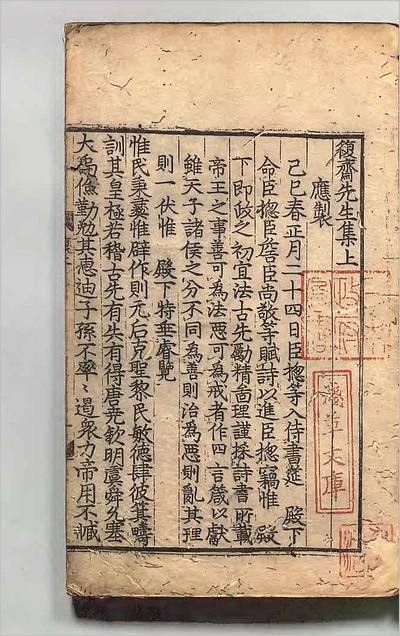 復齋先生集上
應製
己巳春正月二十四日臣摠等入侍書筵 殿下
命臣摠詹臣尚敬等賦詩以進臣摠竊惟 殿
下即政之初宜法古先勵精圖理謹採詩書所載
帝王之事善可為法惡可為戒者作四言箴以獻
雖天子諸侯之分不同為善則治為惡則亂其理
則一伏惟 殿下特垂睿覽
惟民秉彝惟辟作則元后克聖黎民敏德肆彼箕疇
訓其皇極若稽古先有失有得唐堯欽明虞舜允塞
大禹儉勤勉其惠迪子孫不率〻遏衆力帝用不臧
文庫